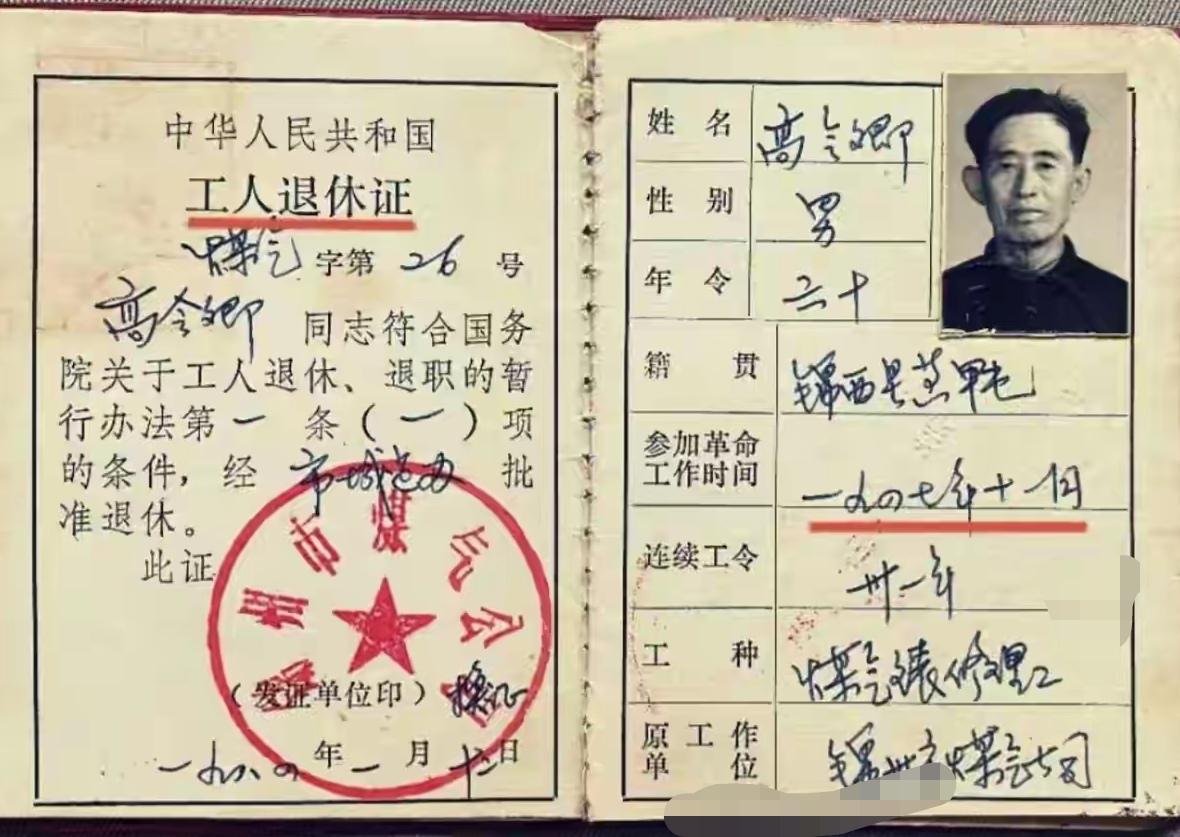 中华人民共和国
工人退休证
煤气字第26号
高令卿 同志符合国务
院关于工人退休、退职的暂
行办法第一条(一)项
的条件，经 市城建办 批
准退休。
此证
锦州市煤气公司
(发证单位印) 换证
一九八四年一月十二日
姓名 高令卿
性别 男
年令 六十
籍贯 锦西县
参加革命
工作时间 一九四七年十一月
连续工令 卅一年
工种 煤气表修理工
原工作
单位 锦州市煤气公司